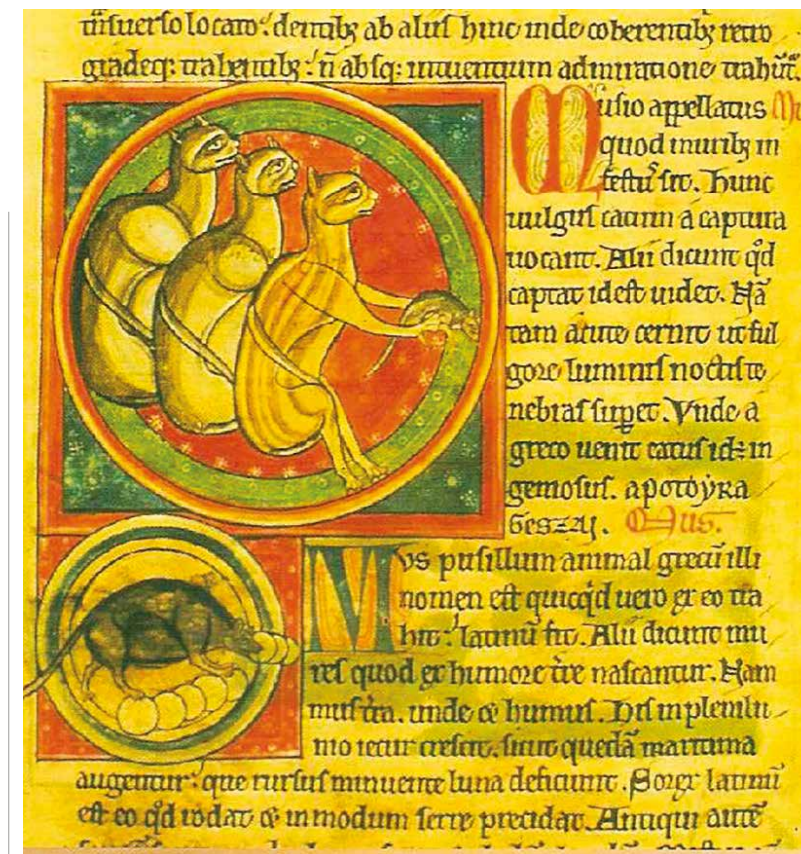 tñsuerso locato: dentibꝫ ab aliis hinc inde coherentibꝫ retro
gradeqꝫ trahentibꝫ: ñ absqꝫ intuentium admiratione trahūt̃.
Musio appellatus
quod muribꝫ in
festꝰ sit. Hunc
uulgus catum a captura
uocant. Alii dicunt qđ
captat id est uidet. Nā
tam acute cernit ut ful
gore luminis noctis te
nebras suꝑet. Vnde a
greco uenit catus id ÷ in
geniosus. apotoẏra
Mus.
Mvs pusillum animal grecū illi
nomen est quicqđ uero ex eo tra
hit: latinū fit. Alii dicunt mu
res quod ex humore t̃re nascantur. Nam
mus t̃ra. unde ⁊ humus. His in plenilu
nio iecur crescit. sicut quedā maritima
augentur: que rursus minuente luna deficiunt. Sorex latinū
est eo qđ rodat ⁊ in modum serre precidat. Antiqui autē